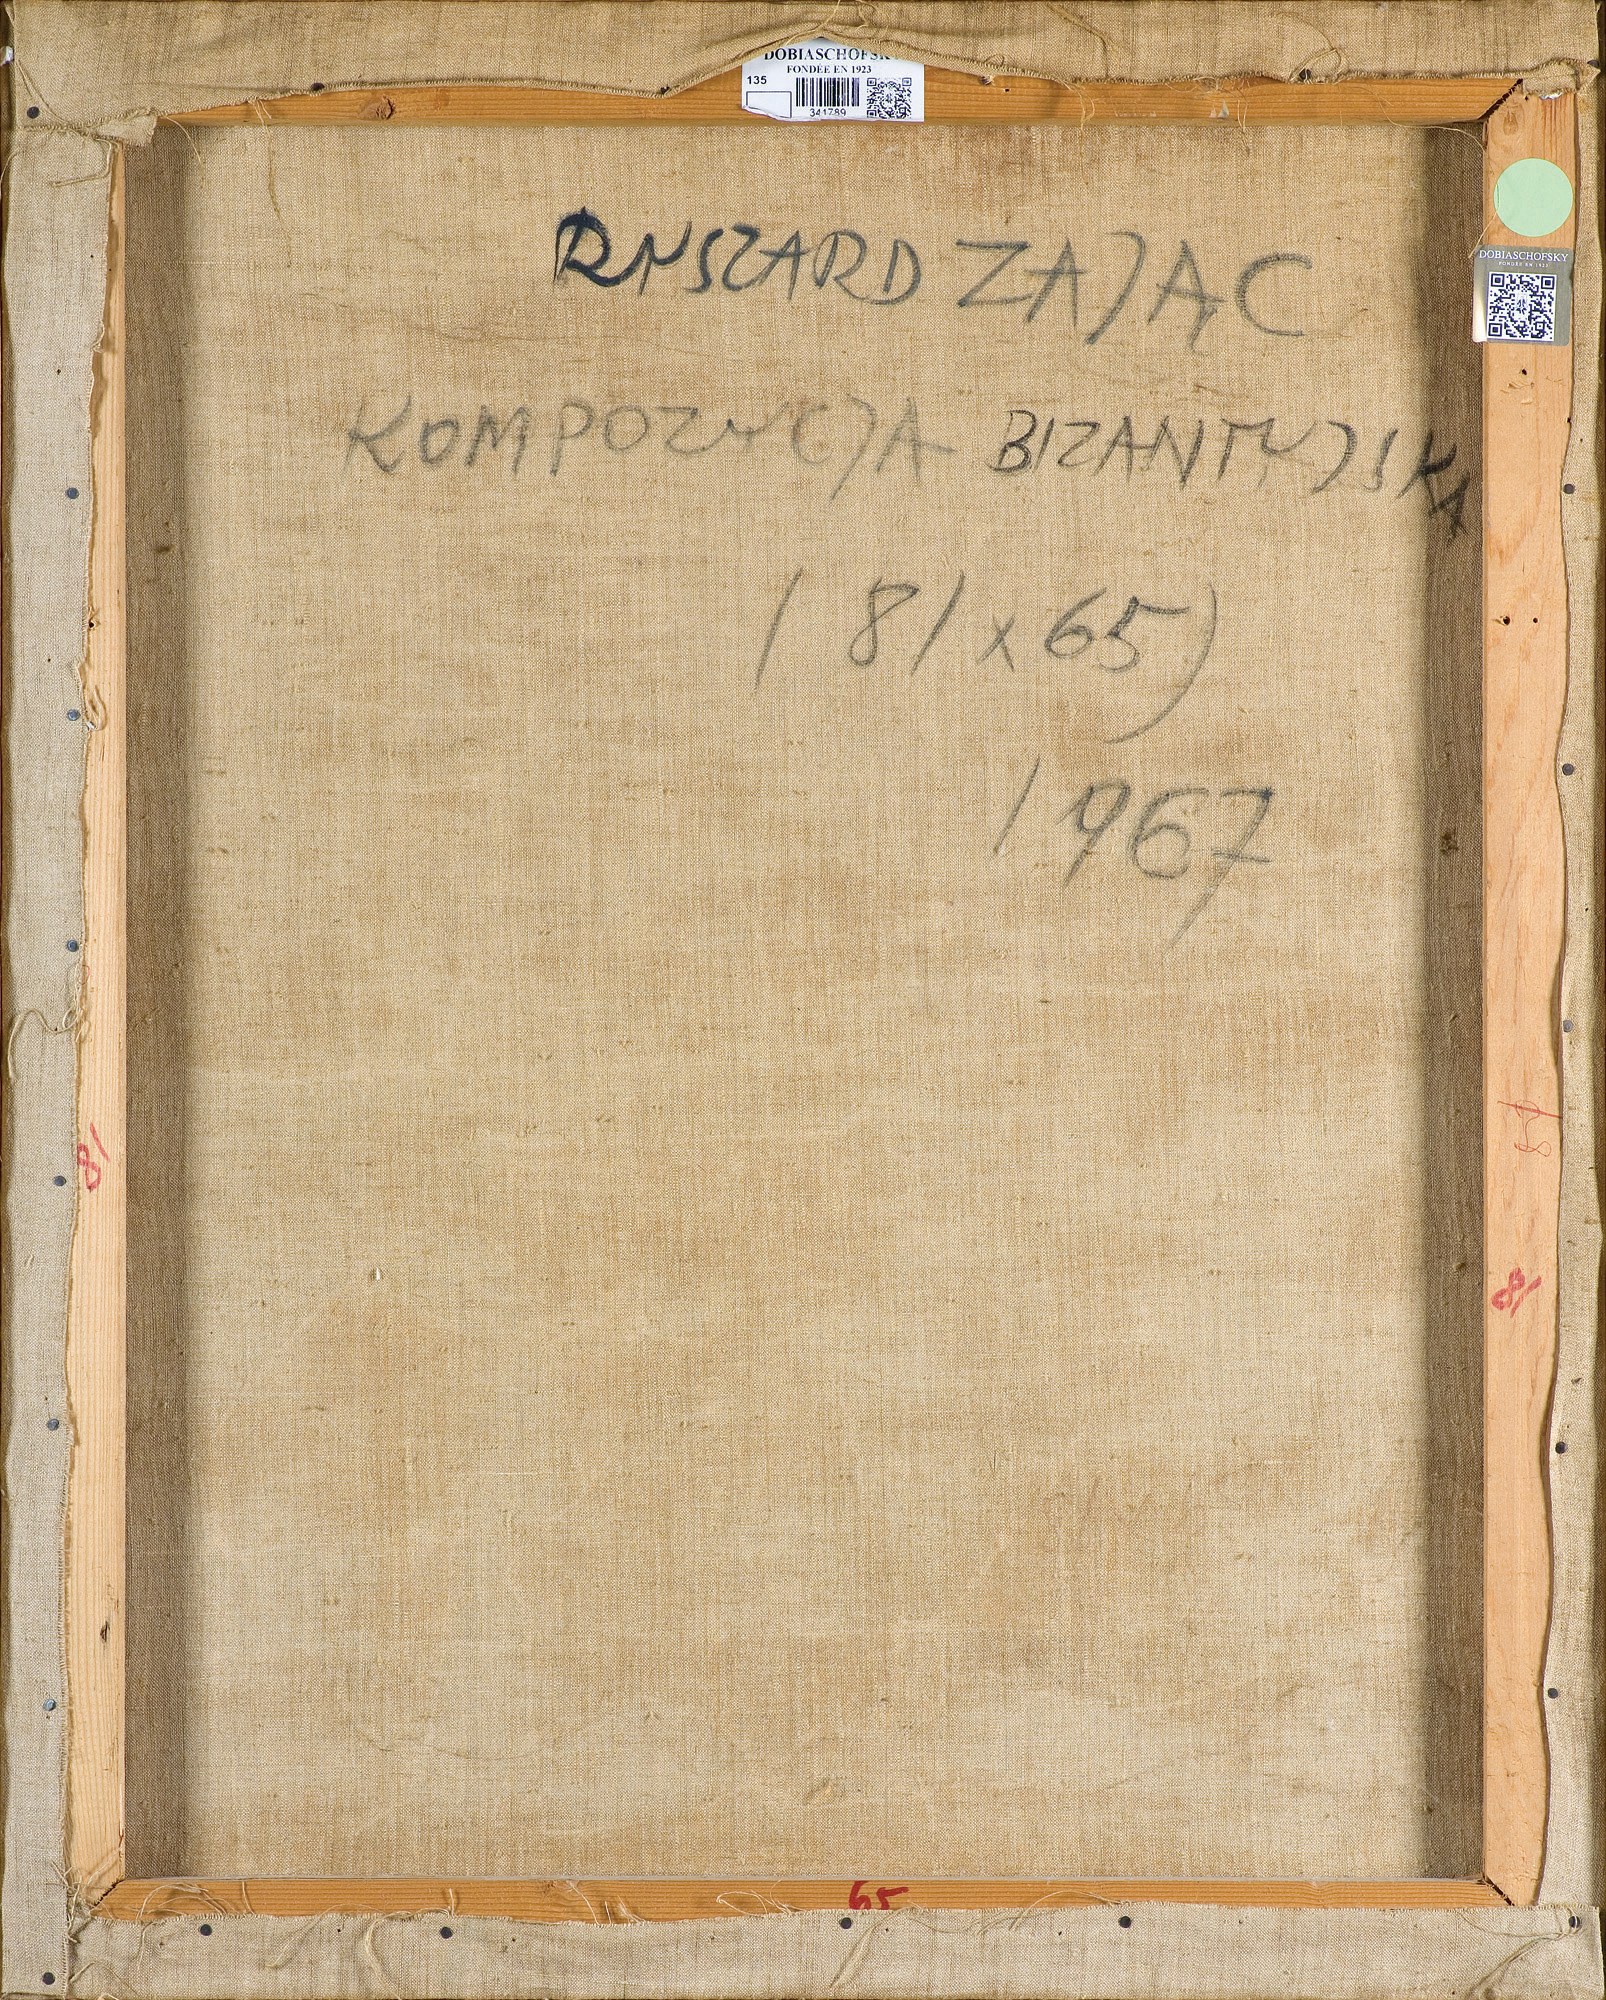 DOBIASCHOFSKY
FONDÉE EN 1923
135
341789
RYSZARD ZAJĄC
DOBIASCHOFSKY
FONDÉE EN 1923
KOMPOZYCJA BIZANTYJSKA
(81 x 65)
1967
81
81
81
65